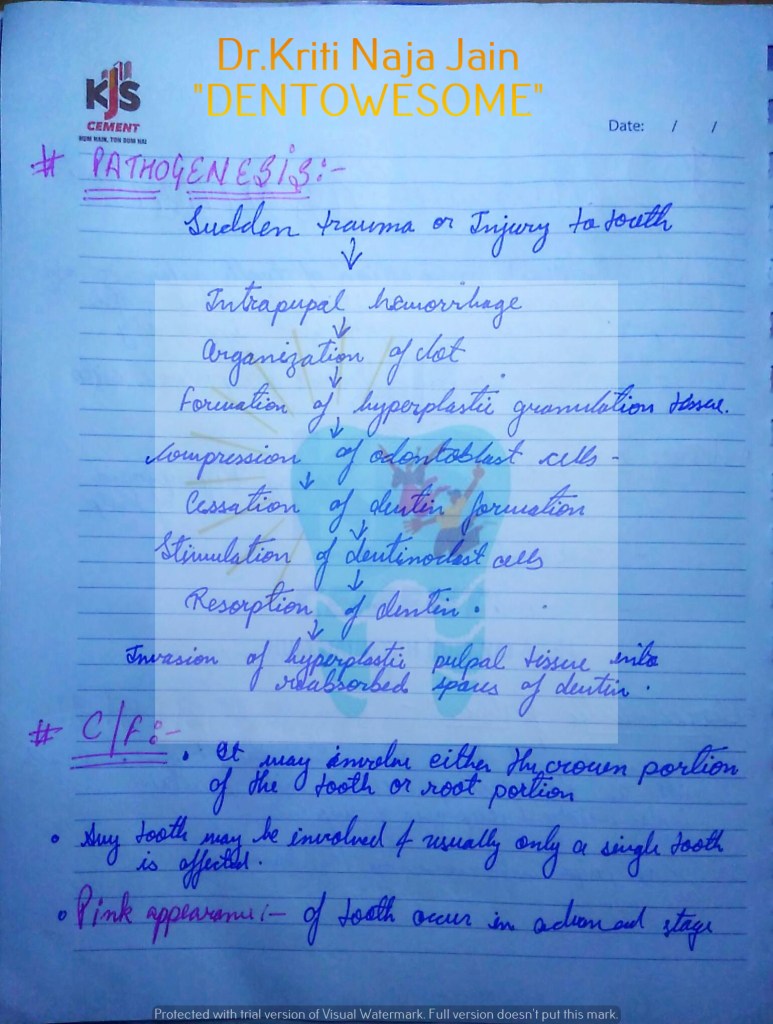 Dr.Kriti Naja Jain
"DENTOWESOME"
KJS
CEMENT
HUM HAIN, TOH DUM HAI
Date: / /
# PATHOGENESIS:-
Sudden trauma or Injury to tooth
↓
Intrapupal hemorrhage
↓
Organization of clot
↓
Formation of hyperplastic granulation tissue.
↓
Compression of odontoblast cells -
↓
Cessation of dentin formation
↓
Stimulation of dentinoclast cells
↓
Resorption of dentin.
↓
Invasion of hyperplastic pulpal tissue into
reabsorbed spaces of dentin.
# C/F:-
• It may involve either the crown portion
of the tooth or root portion
• Any tooth may be involved & usually only a single tooth
is affected.
• Pink appearance:- of tooth occur in advanced stage
Protected with trial version of Visual Watermark. Full version doesn't put this mark.